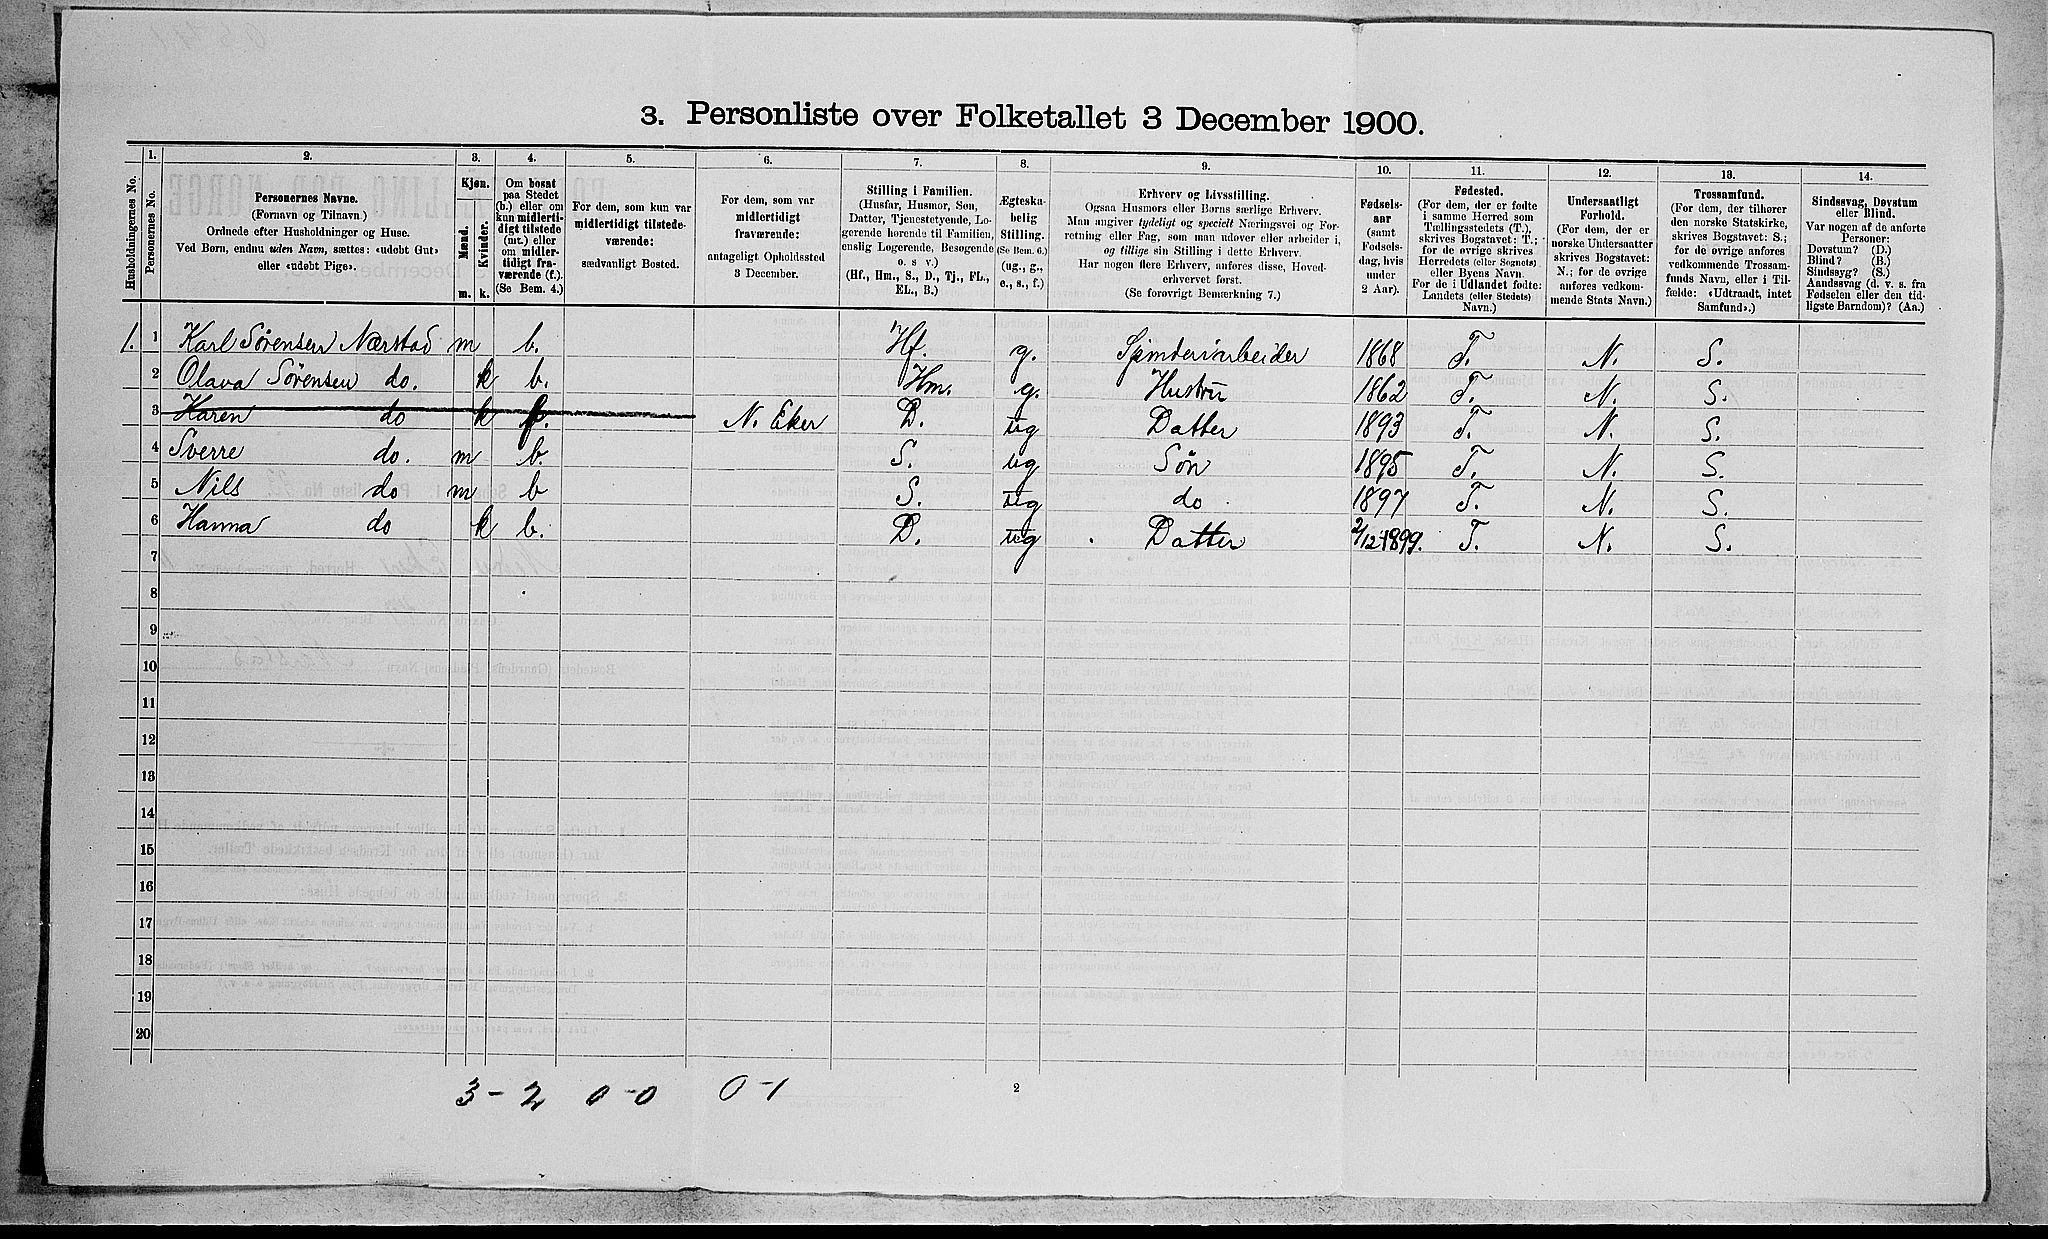 3. Personliste over Folketallet 3 December 1900.
Husholdningernes No.
1. Personernes No.
2.
Personernes Navne.
(Fornavn og Tilnavn.)
Ordnede efter Husholdninger og Huse.
Ved Børn, endnu uden Navn, sættes: «udøbt Gut»
eller «udøbt Pige».
3.
Kjøn.
Mænd.
Kvinder.
m. k.
4.
Om bosat
paa Stedet
(b.) eller om
kun midlerti-
digt tilstede
(mt.) eller
om midler-
tidigt fra-
værende (f.).
(Se Bem. 4.)
5.
For dem, som kun var
midlertidigt tilstede-
værende:
sædvanligt Bosted.
6.
For dem, som var
midlertidigt
fraværende:
antageligt Opholdssted
3 December.
7.
Stilling i Familien.
(Husfar, Husmor, Søn,
Datter, Tjenestetyende, Lo-
gerende hørende til Familien,
enslig Logerende, Besøgende
o. s v.)
(Hf., Hm., S., D., Tj., FL.,
EL., B.)
8.
Ægteska-
belig
Stilling.
(Se Bem. 6.)
(ug., g.,
e., s., f.)
9.
Erhverv og Livsstilling.
Ogsaa Husmors eller Børns særlige Erhverv.
Man angiver tydeligt og specielt Næringsvei og For-
retning eller Fag, som man udøver eller arbeider i,
og tillige sin Stilling i dette Erhverv.
Har nogen flere Erhverv, anføres disse, Hoved-
erhvervet først.
(Se forøvrigt Bemærkning 7.)
10.
Fødsels-
aar
(samt
Fødsels-
dag, hvis
under
2 Aar).
11.
Fødested.
(For dem, der er fødte
i samme Herred som
Tællingsstedets (T.),
skrives Bogstavet: T.;
for de øvrige skrives
Herredets (eller Sognets)
eller Byens Navn.
For de i Udlandet fødte:
Landets (eller Stedets)
Navn.)
12.
Undersaatligt
Forhold.
(For dem, der er
norske Undersaatter
skrives Bogstavet:
N.; for de øvrige
anføres vedkom-
mende Stats Navn.)
13.
Trossamfund.
(For dem, der tilhører
den norske Statskirke,
skrives Bogstavet: S.;
for de øvrige anføres
vedkommende Trossam-
funds Navn, eller i Til-
fælde: «Udtraadt, intet
Samfund».)
14.
Sindssvag, Døvstum
eller Blind.
Var nogen af de anførte
Personer:
Døvstum? (D.)
Blind? (B.)
Sindssyg? (S.)
Aandssvag (d. v. s. fra
Fødselen eller den tid-
ligste Barndom)? (Aa.)
1. 1 Karl Sørensen Nærstad m b. Hf. g. Spinderiarbeider 1868 T. N. S.
2 Olava Sørensen do. k b. Hm. g. Hustru 1862 T. N. S.
3 Karen do k f. N. Eker D. ug Datter 1893 T. N. S.
4 Sverre do. m b. S. ug Søn 1895 T. N. S.
5 Nils do m b S. ug do 1897 T. N. S.
6 Hanna do k b. D. ug Datter 2/12-1899. T. N. S.
7
8
9
10
11
12
13
14
15
16
17
18
19
20
3 - 2 0 - 0 0 - 1
2